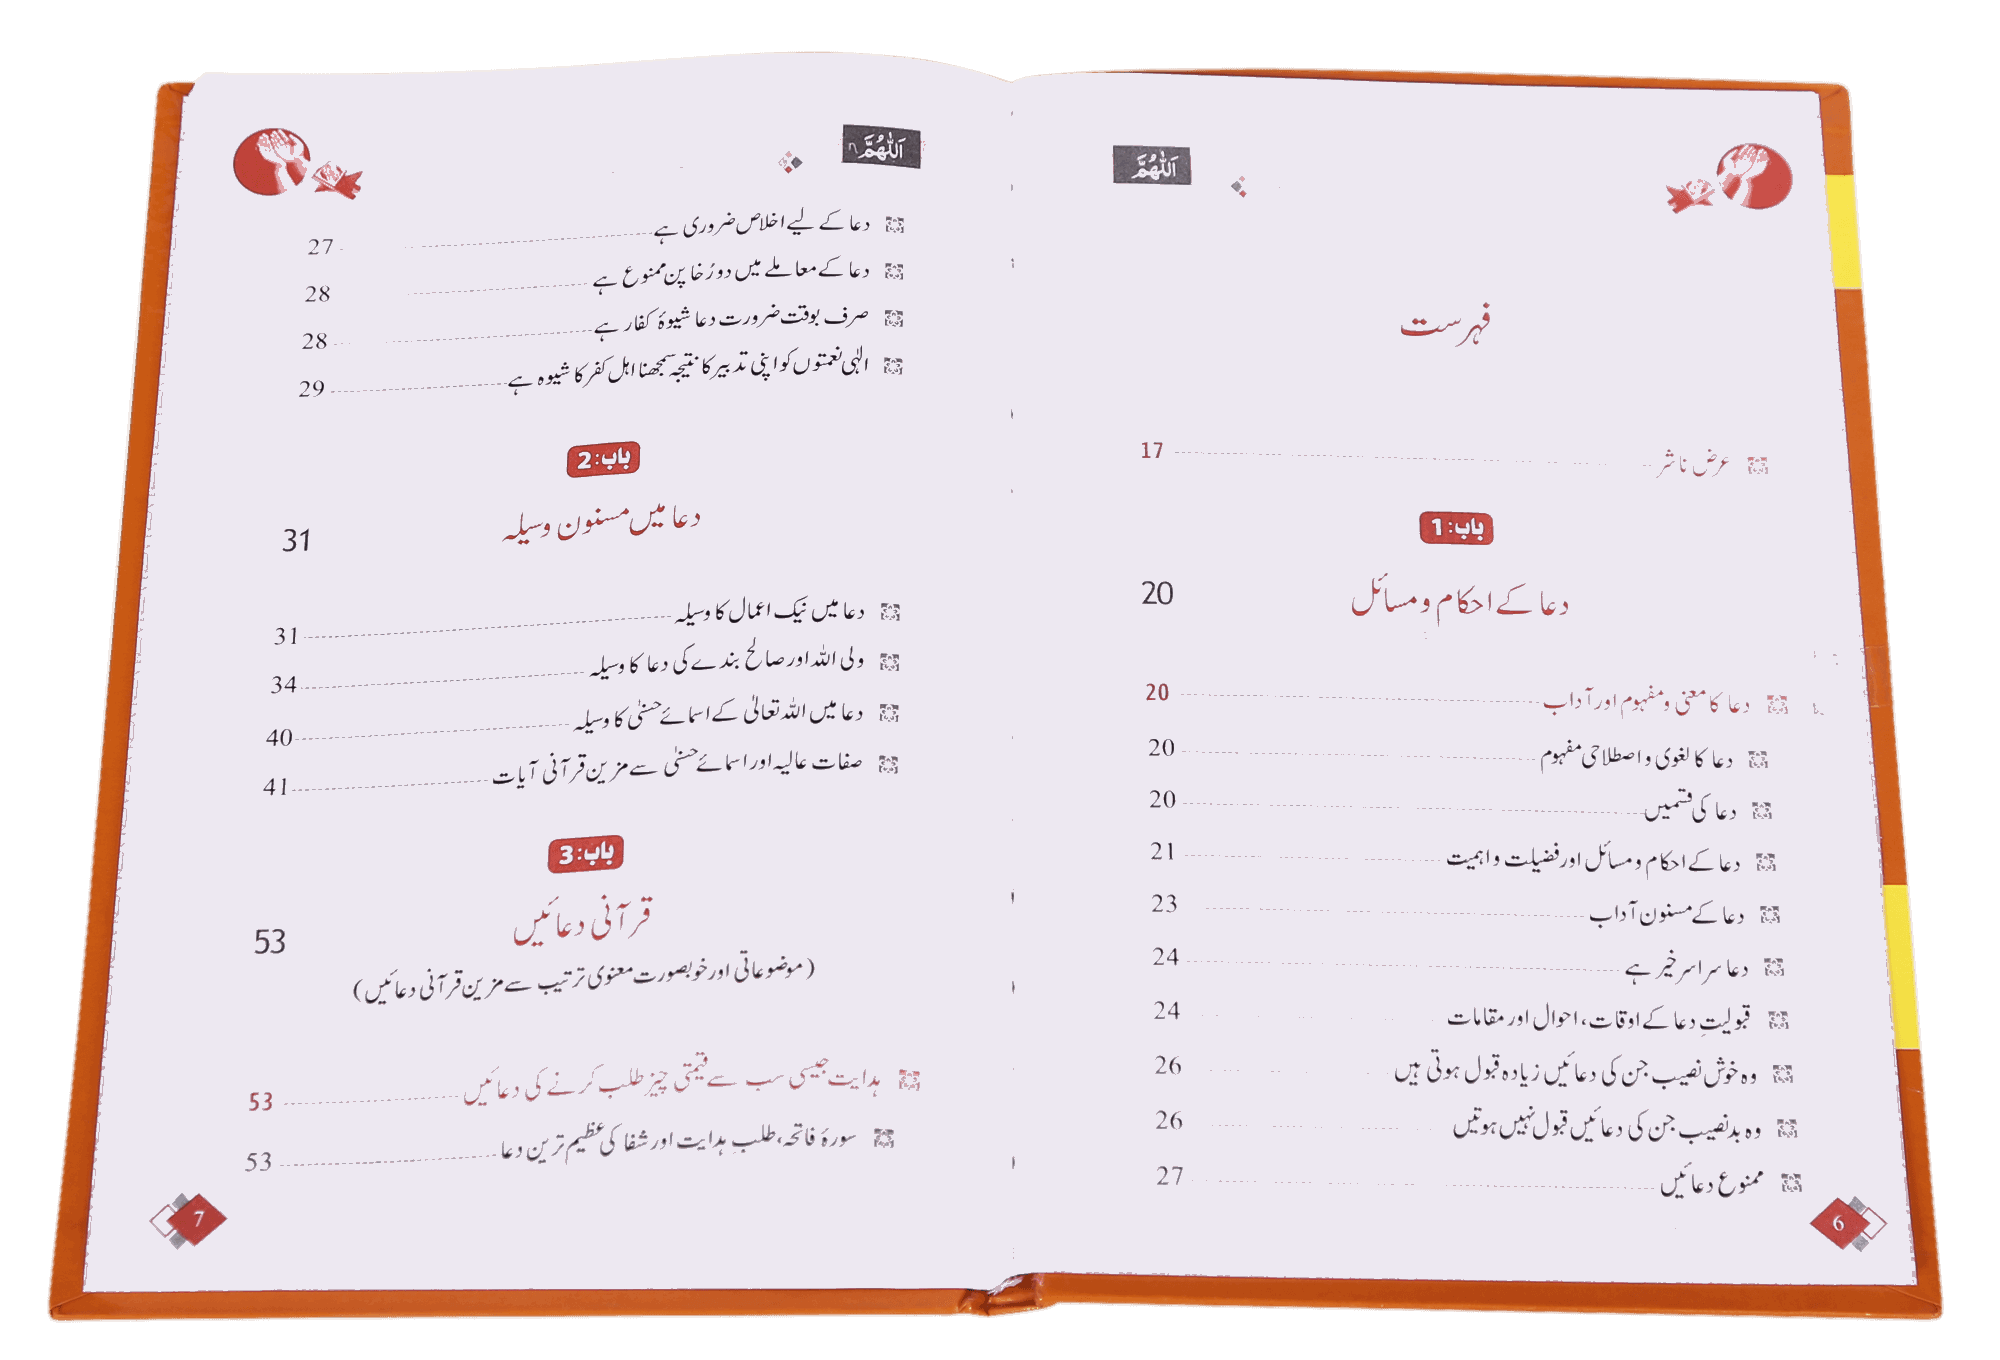 اَللّٰهُمَّ
فہرست
عرض ناشر 17
باب:1
دعا کے احکام و مسائل 20
دعا کا معنی و مفہوم اور آداب 20
دعا کا لغوی و اصطلاحی مفہوم 20
دعا کی قسمیں 20
دعا کے احکام و مسائل اور فضیلت و اہمیت 21
دعا کے مسنون آداب 23
دعا سراسر خیر ہے 24
قبولیتِ دعا کے اوقات، احوال اور مقامات 24
وہ خوش نصیب جن کی دعائیں زیادہ قبول ہوتی ہیں 26
وہ بدنصیب جن کی دعائیں قبول نہیں ہوتیں 26
ممنوع دعائیں 27
6
اَللّٰهُمَّ
دعا کے لیے اخلاص ضروری ہے 27
دعا کے معاملے میں دورُخا پن ممنوع ہے 28
صرف بوقت ضرورت دعا شیوۂ کفار ہے 28
الٰہی نعمتوں کو اپنی تدبیر کا نتیجہ سمجھنا اہل کفر کا شیوہ ہے 29
باب:2
دعا میں مسنون وسیلہ 31
دعا میں نیک اعمال کا وسیلہ 31
ولی اللہ اور صالح بندے کی دعا کا وسیلہ 34
دعا میں اللہ تعالیٰ کے اسمائے حسنٰی کا وسیلہ 40
صفات عالیہ اور اسمائے حسنٰی سے مزین قرآنی آیات 41
باب:3
قرآنی دعائیں 53
(موضوعاتی اور خوبصورت معنوی ترتیب سے مزین قرآنی دعائیں)
ہدایت جیسی سب سے قیمتی چیز طلب کرنے کی دعائیں 53
سورۂ فاتحہ، طلبِ ہدایت اور شفا کی عظیم ترین دعا 53
7